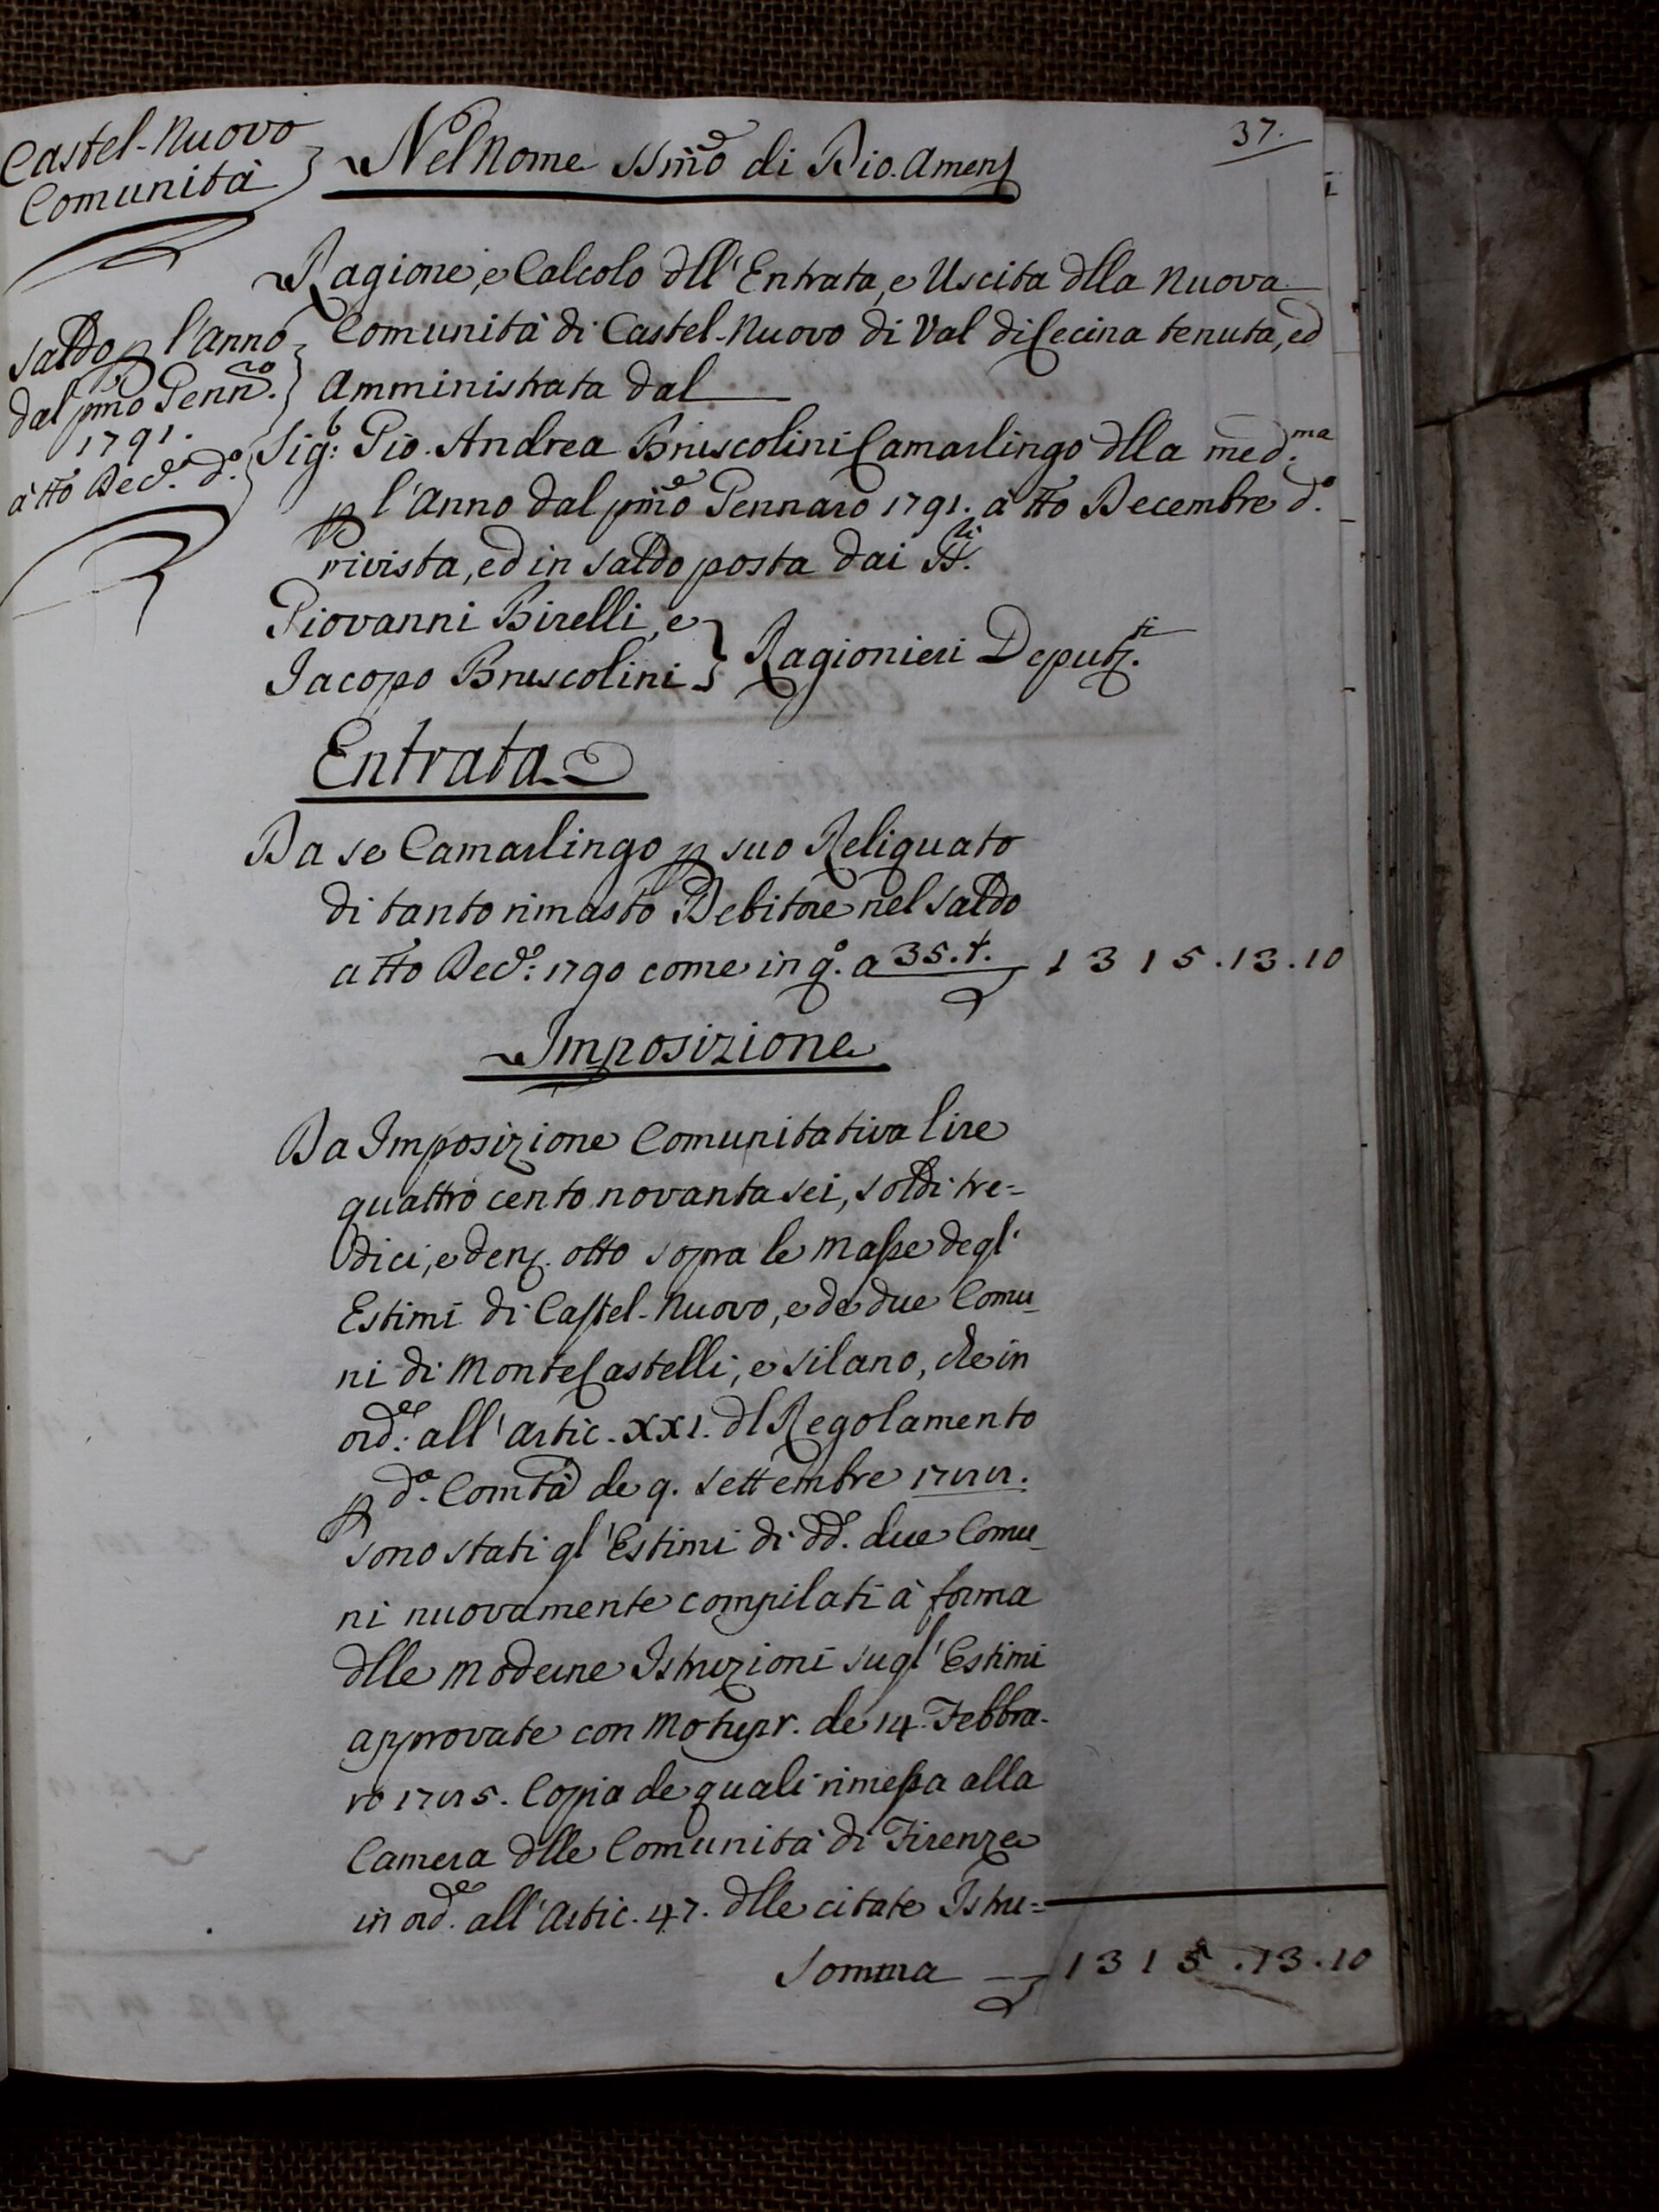 37.
Castel-Nuovo
Comunità
Nel Nome SSmo di Dio. Amen
Ragione, e Calcolo dll'Entrata, e Uscita dlla Nuova
Comunità di Castel-Nuovo di Val di Cecina tenuta, ed
Amministrata dal
Saldo p l'Anno
dal pmo Genn.ro
1791.
à tto Dec.e d.o
Sig: Gio. Andrea Bruscolini Camarlingo dlla med.ma
p l'Anno dal pmo Gennaro 1791. à tto Decembre d.o
rivista, ed in saldo posta dai SS.ri
Giovanni Birelli, e
Jacopo Bruscolini
Ragionieri Deput.ti
Entrata
Da se Camarlingo p suo Reliquato
di tanto rimasto Debitore nel saldo
a tto Dec.e 1790 come in q.o a 35.t. 1315.13.10
Imposizione
Da Imposizione Comunitativa lire
quattro cento novanta sei, soldi tre=
dici, e den. otto sopra le Masse degl'
Estimi di Castel-Nuovo, e de due Comu_
ni di Monte Castelli, e Silano, che in
ord.e all'Artic. XXI. dl Regolamento
p d.a Com.tà de 9. Settembre 1777.
sono stati gl'Estimi di dd. due Comu_
ni nuovamente compilati à forma
dlle moderne Istruzioni sugl'Estimi
approvate con Motupr. de 14. Febbra-
ro 1775. Copia de quali rimessa alla
Camera dlle Comunità di Firenze
in ord.e all'Artic. 47. dlle citate Istru=
Somma 1315.13.10